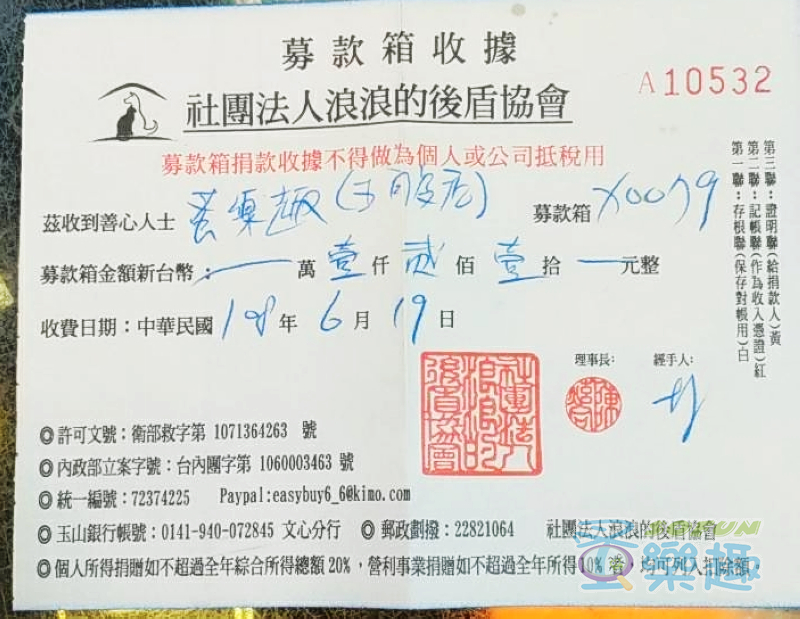 募款箱收據
A10532
社團法人浪浪的後盾協會
募款箱捐款收據不得做為個人或公司抵稅用
茲收到善心人士 蛋樂趣 募款箱 X0079
募款箱金額新台幣：一萬壹仟貳佰壹拾一元整
收費日期：中華民國 108 年 6 月 19 日
理事長： 經手人：
社團法人浪浪的後盾協會
◎許可文號：衛部救字第 1071364263 號
◎內政部立案字號：台內團字第 1060003463 號
◎統一編號：72374225 Paypal:easybuy6_6@kimo.com
◎玉山銀行帳號：0141-940-072845 文心分行 ◎郵政劃撥：22821064 社團法人浪浪的後盾協會
◎個人所得捐贈如不超過全年綜合所得總額20%，營利事業捐贈如不超過全年所得10%者，均可列入扣除額。
第三聯：證明聯(給捐款人)黃
第二聯：記帳聯(作為收入憑證)紅
第一聯：存根聯(保存對帳用)白
蛋樂趣